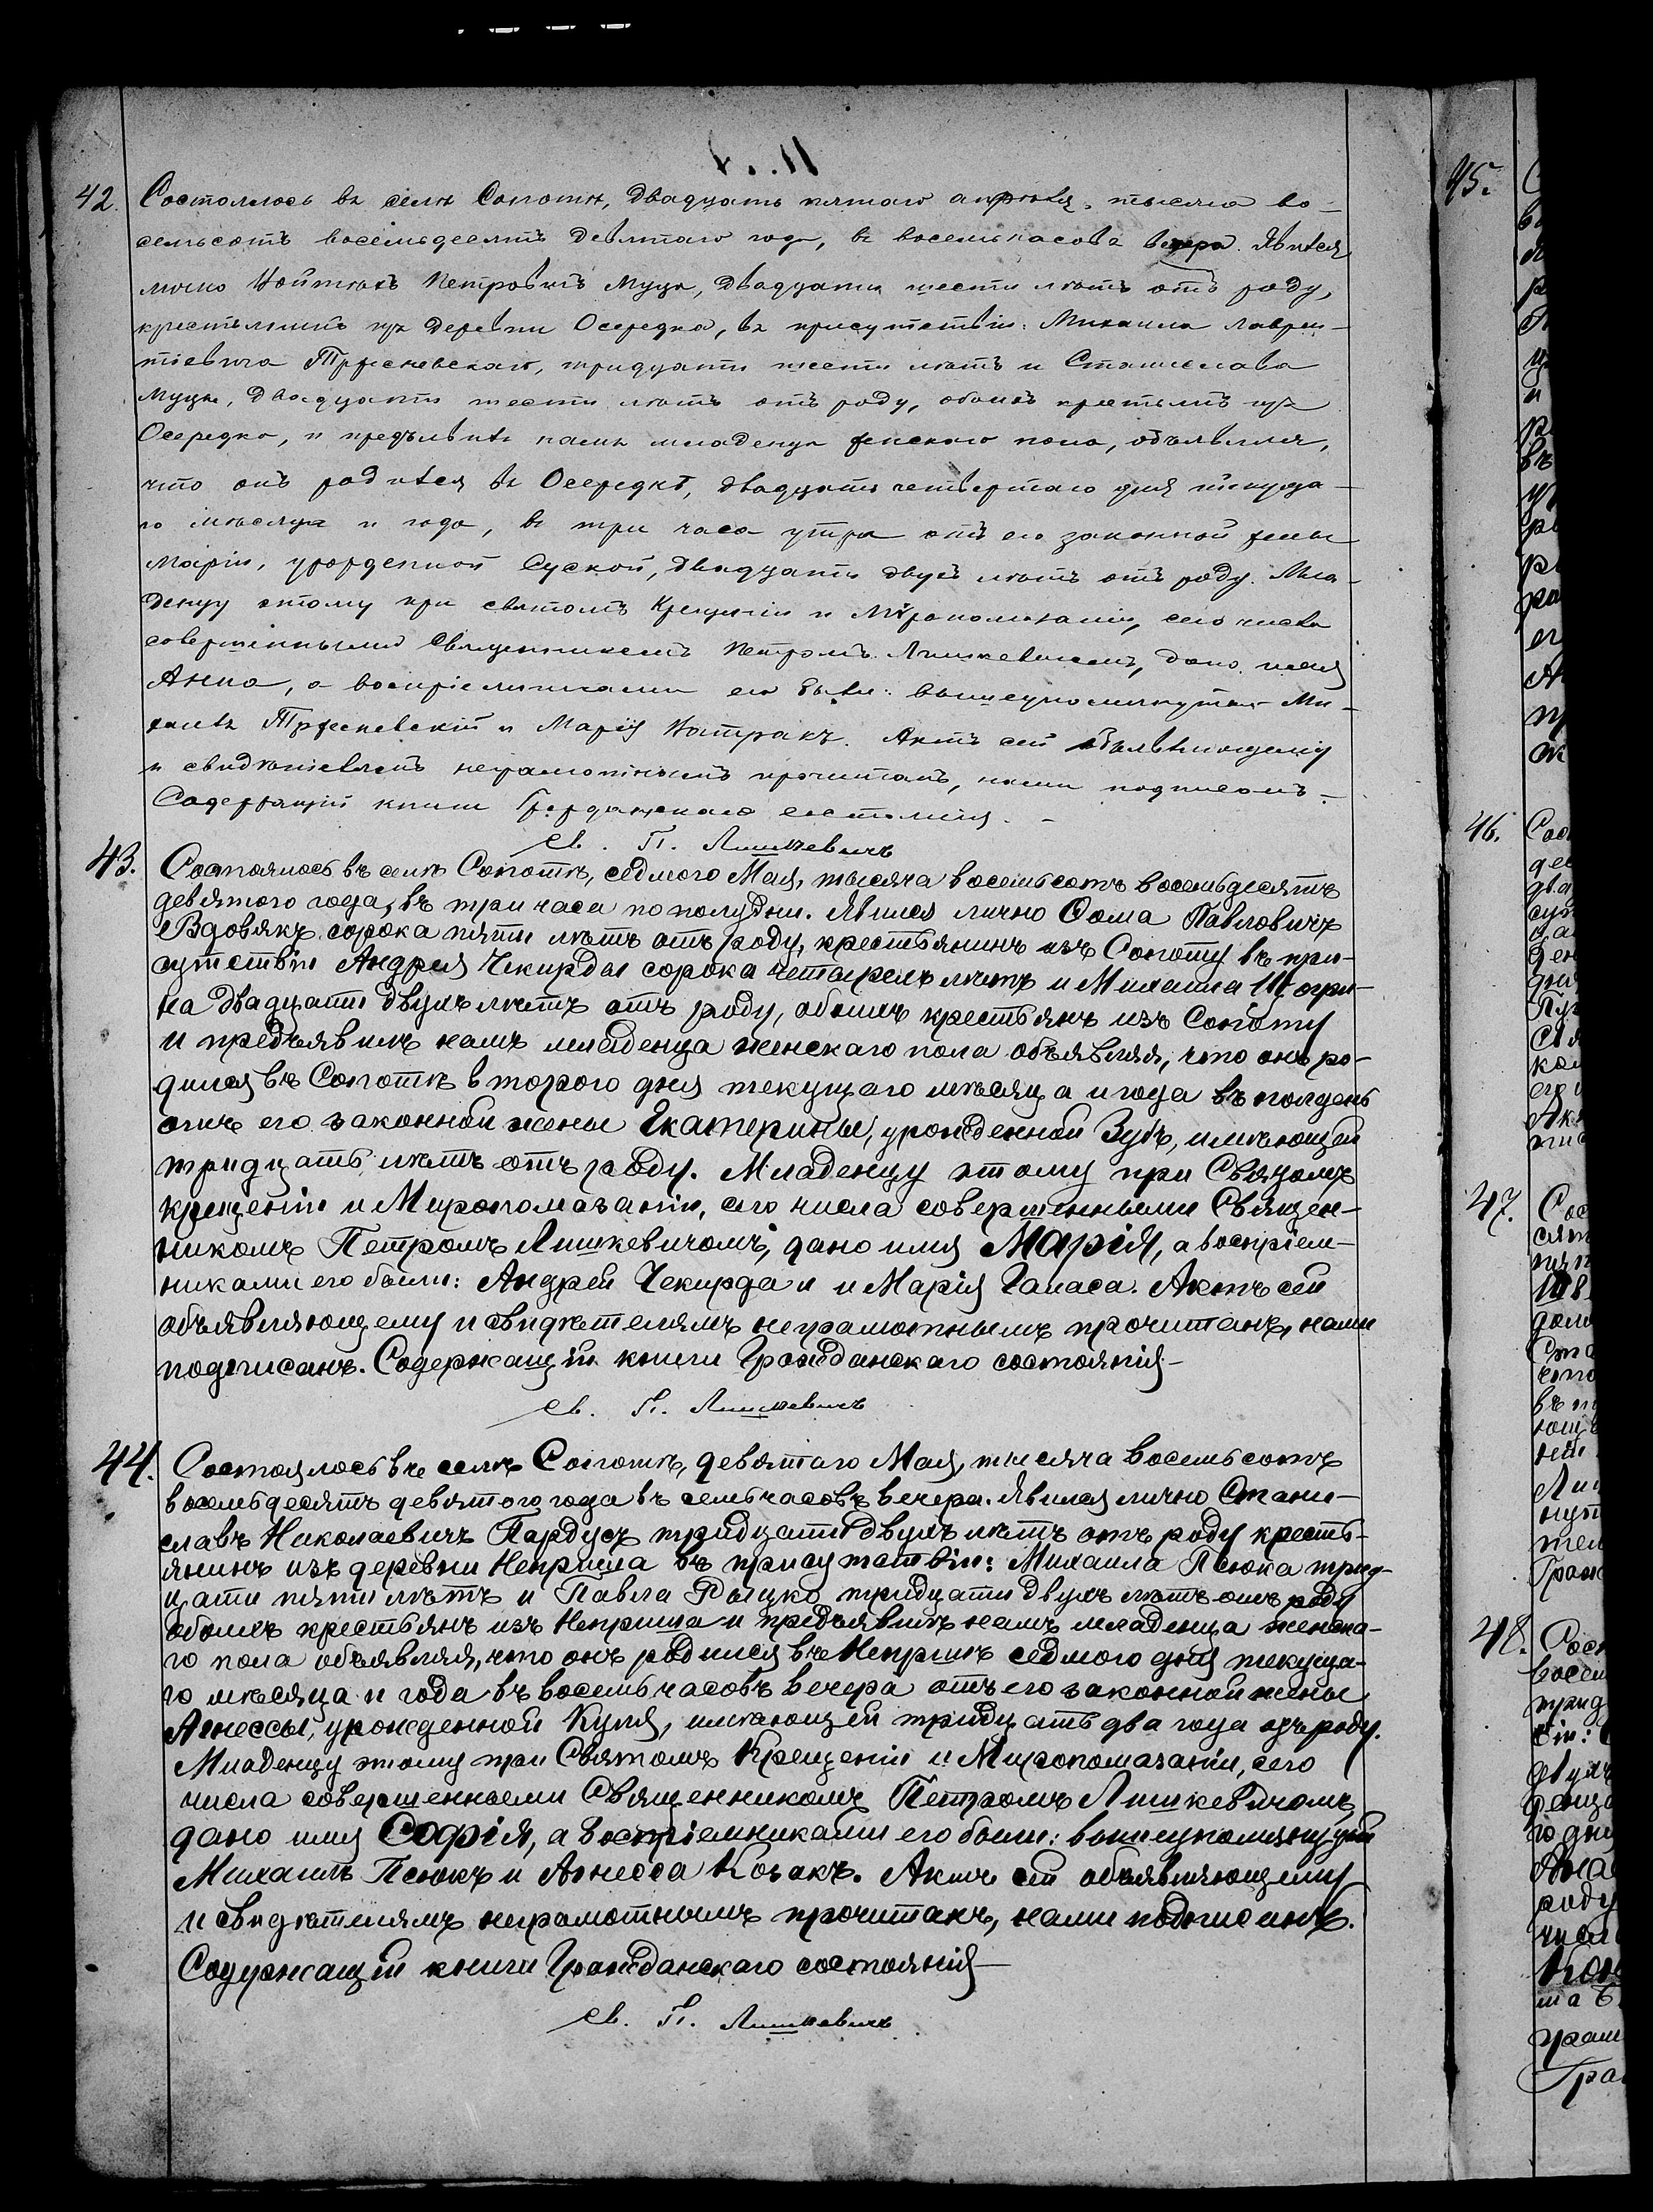 42. Состоялось въ селѣ Сопотѣ, двадцать пятаго апрѣля, тысяча во-
семьсотъ восемьдесятъ девятаго года, въ восемь часовъ вечера. Явился
лично Войтѣхъ Петровичъ Муца, двадцати шести лѣтъ отъ роду,
крестьянинъ изъ деревни Осередка, въ присутствіи: Михаила Лаврен-
тіевича Тржсневскаго, тридцати шести лѣтъ и Станислава
Муцы, двадцати шести лѣтъ отъ роду, обоихъ крестьянъ изъ
Осередка, и предъявилъ намъ младенца женскаго пола, объявляя,
что онъ родился въ Осередкѣ, двадцать четвертаго дня текуща-
го мѣсяца и года, въ три часа утра отъ его законной жены
Маріи, урожденной Суской, двадцати двухъ лѣтъ отъ роду. Мла-
денцу этому при святомъ Крещеніи и Мѵропомазаніи, сего числа
совершенными Священникомъ Петромъ Лишкевичемъ, дано имя
Анна, а воспріемниками его были: вышеупомянутый Ми-
хаилъ Тржсневскій и Марія Патракъ. Актъ сей объявляющему
и свидѣтелямъ неграмотнымъ прочитанъ, нами подписанъ.-
Содержащій книги Гражданскаго состоянія. -
Св. П. Лишкевичъ
43. Состоялось въ селѣ Сопотѣ, седмого Мая, тысяча восемьсотъ восемьдесятъ
девятого года, въ три часа по полудни. Явился лично Ѳома Павловичъ
Вдовякъ сорока пяти лѣтъ отъ роду, крестьянинъ изъ Сопоту въ при-
сутствіи Андрея Чекирды сорока четырехъ лѣтъ и Михаила Шогри-
на двадцати двухъ лѣтъ отъ роду, обоихъ крестьянъ изъ Сопоту
и предъявилъ намъ младенца женскаго пола объявляя, что онъ ро-
дился въ Сопотѣ второго дня текущаго мѣсяца и года въ полдень
отъ его законной жены Екатерины, урожденной Зубъ, имѣющей
тридцать лѣтъ отъ роду. Младенцу этому при Святомъ
крещеніи и Миропомазаніи, сего числа совершенными Священ-
никомъ Петромъ Лишкевичомъ, дано имя Марія, а воспріем-
никами его были: Андрей Чекирда и и Марія Галаса. Актъ сей
объявляющему и свидѣтелямъ неграмотнымъ прочитанъ, нами
подписанъ. Содержащій книги Гражданскаго состоянія-
Св. П. Лишкевичъ
44. Состоялось въ селѣ Сопотѣ, девятаго Мая, тысяча восемьсотъ
восемьдесятъ девятого года въ семь часовъ вечера. Явился лично Стани-
славъ Николаевичъ Пардусъ тридцати двухъ лѣтъ отъ роду кресть-
янинъ изъ деревни Неприша въ присутствіи: Михаила Псюка трид-
цати пяти лѣтъ и Павла Рыцко тридцати двухъ лѣтъ отъ роду
обоихъ крестьянъ изъ Неприша и предъявилъ намъ младенца женска-
го пола объявляя, что онъ родился въ Непришѣ седмого дня текуща-
го мѣсяца и года въ восемь часовъ вечера отъ его законной жены
Агнессы, урожденной Куля, имѣющей тридцать два года отъ роду.
Младенцу этому при Святомъ Крещеніи и Миропомазаніи, сего
числа совершенными Священникомъ Петромъ Лишкевичомъ
дано имя Софія, а воспріемниками его были: вышеупомянутый
Михаилъ Псюкъ и Агнесса Козакъ. Актъ сей объявляющему
и свидѣтелямъ неграмотнымъ прочитанъ, нами подписанъ.
Содержащій книги Гражданскаго состоянія-
Св. П. Лишкевичъ
45.
46.
47.
48.